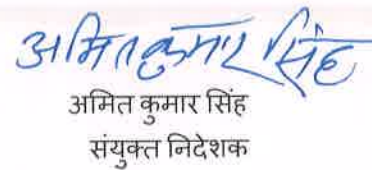 अमित कुमार सिंह
अमित कुमार सिंह
संयुक्त निदेशक